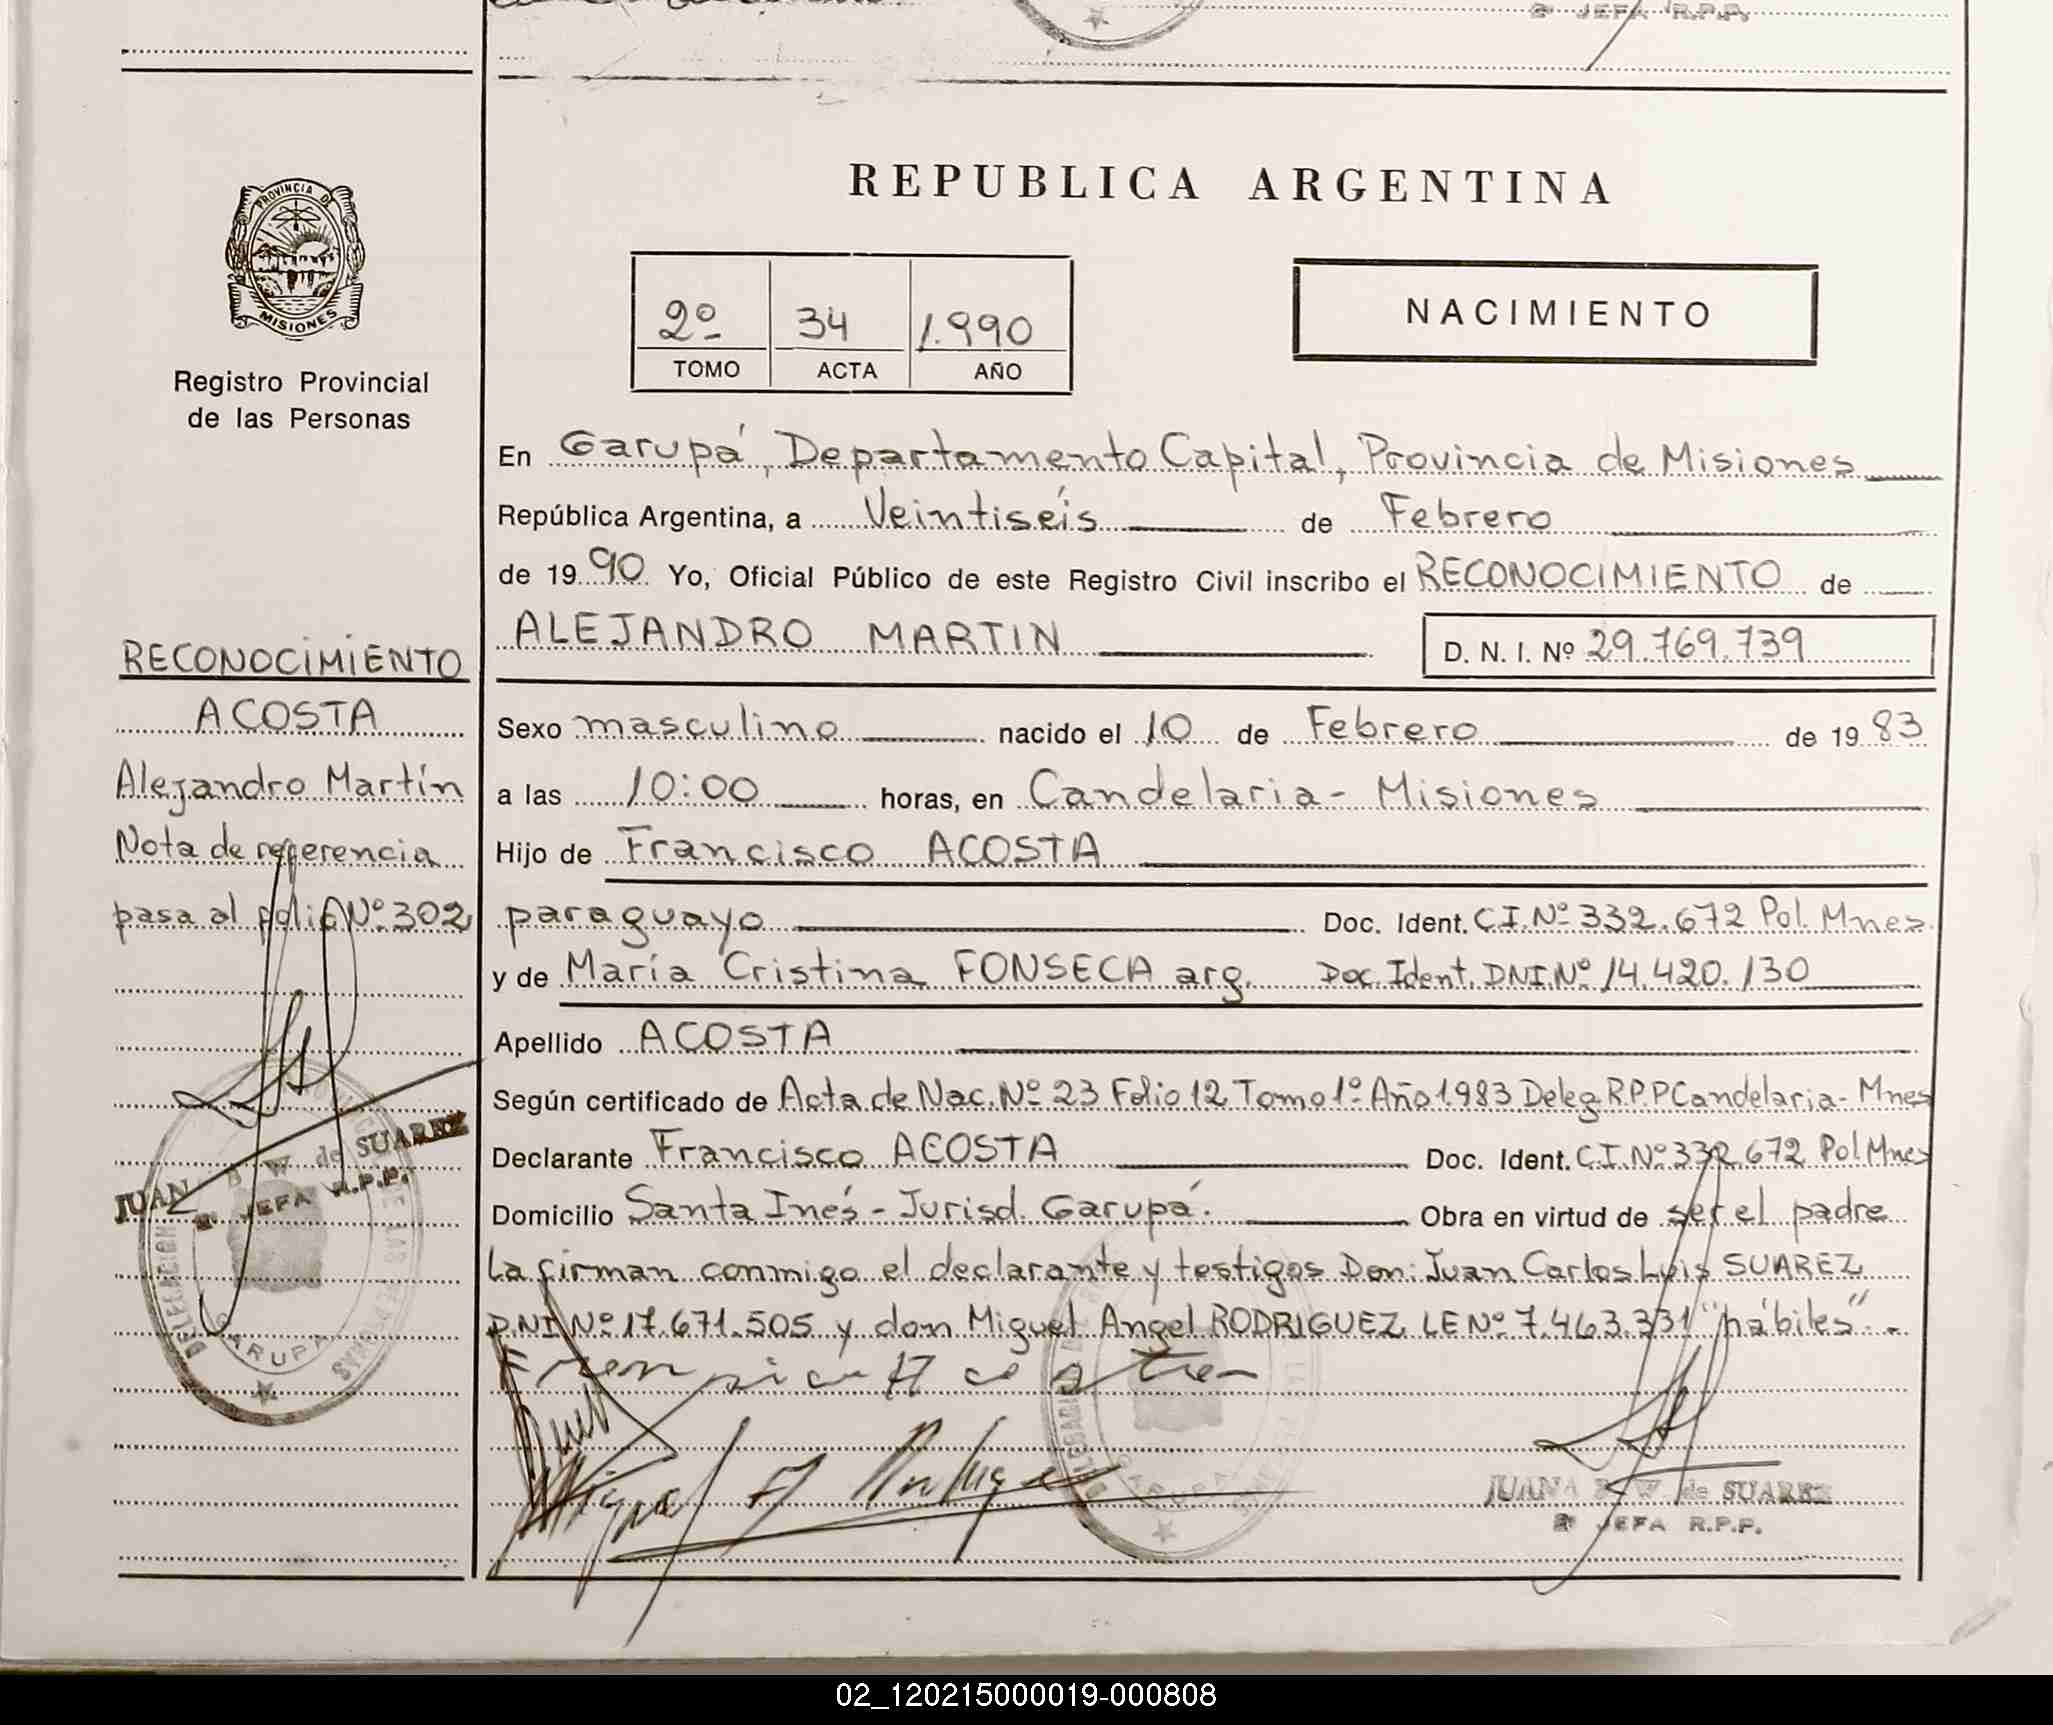 2ª JEFA R.P.P.
PROVINCIA DE
MISIONES
Registro Provincial
de las Personas
RECONOCIMIENTO
ACOSTA
Alejandro Martín
Nota de referencia
pasa al folio Nº 302
JUANA B W de SUAREZ
2ª JEFA R.P.P.
DELEGACION
GARUPA
REPUBLICA ARGENTINA
2º 34 1.990
TOMO ACTA AÑO
NACIMIENTO
En Garupá, Departamento Capital, Provincia de Misiones
República Argentina, a Veintiséis de Febrero
de 1990 Yo, Oficial Público de este Registro Civil inscribo el RECONOCIMIENTO de
ALEJANDRO MARTIN D. N. I. Nº 29.769.739
Sexo masculino nacido el 10 de Febrero de 1983
a las 10:00 horas, en Candelaria - Misiones
Hijo de Francisco ACOSTA
paraguayo Doc. Ident. C.I. Nº 332.672 Pol. Mnes.
y de María Cristina FONSECA arg. Doc. Ident. DNI Nº 14.420.130
Apellido ACOSTA
Según certificado de Acta de Nac. Nº 23 Folio 12 Tomo 1º Año 1.983 Deleg R.P.P Candelaria - Mnes
Declarante Francisco ACOSTA Doc. Ident. C.I. Nº 332.672 Pol Mnes
Domicilio Santa Inés - Jurisd. Garupá. Obra en virtud de ser el padre
La firman conmigo el declarante y testigos Don: Juan Carlos Luis SUAREZ
D.N.I Nº 17.671.505 y don Miguel Angel RODRIGUEZ LE Nº 7.463.331 "hábiles".-
Miguel A
JUANA B W de SUAREZ
2ª JEFA R.P.P.
02_120215000019-000808